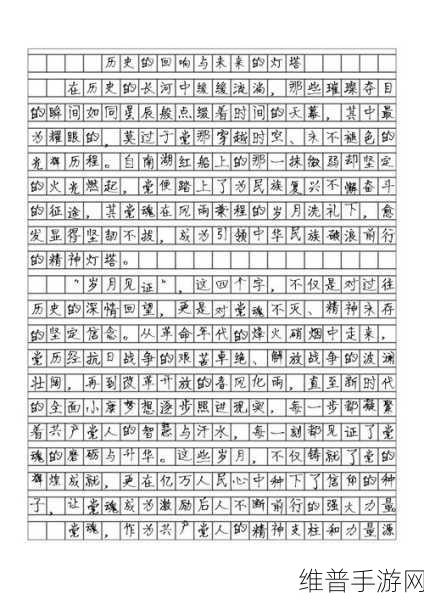 历史的回响与未来的灯塔
在历史的长河中缓缓流淌，那些璀璨夺目
的瞬间如同星辰般点缀着时间的天幕，其中最
为耀眼的，莫过于党那穿越时空、永不褪色的
光辉历程。自南湖红船上的那一抹微弱却坚定
的火光燃起，党便踏上了为民族复兴不懈奋斗
的征途，其党魂在风雨兼程的岁月洗礼下，愈
发显得坚韧不拔，成为引领中华民族破浪前行
的精神灯塔。
“岁月见证”，这四个字，不仅是对过往
历史的深情回望，更是对党魂不灭、精神永存
的坚定信念。从革命年代的烽火硝烟中走来，
党历经抗日战争的艰苦卓绝、解放战争的波澜
壮阔，再到改革开放的春风化雨，直至新时代
的全面小康梦想逐步照进现实，每一步都凝聚
着共产党人的智慧与汗水，每一刻都见证了党
魂的磨砺与升华。这些岁月，不仅铸就了党的
辉煌成就，更在亿万人民心中种下了信仰的种
子，让党魂成为激励后人不断前行的强大力量。
党魂，作为共产党人的精神支柱和力量源
维普手游网